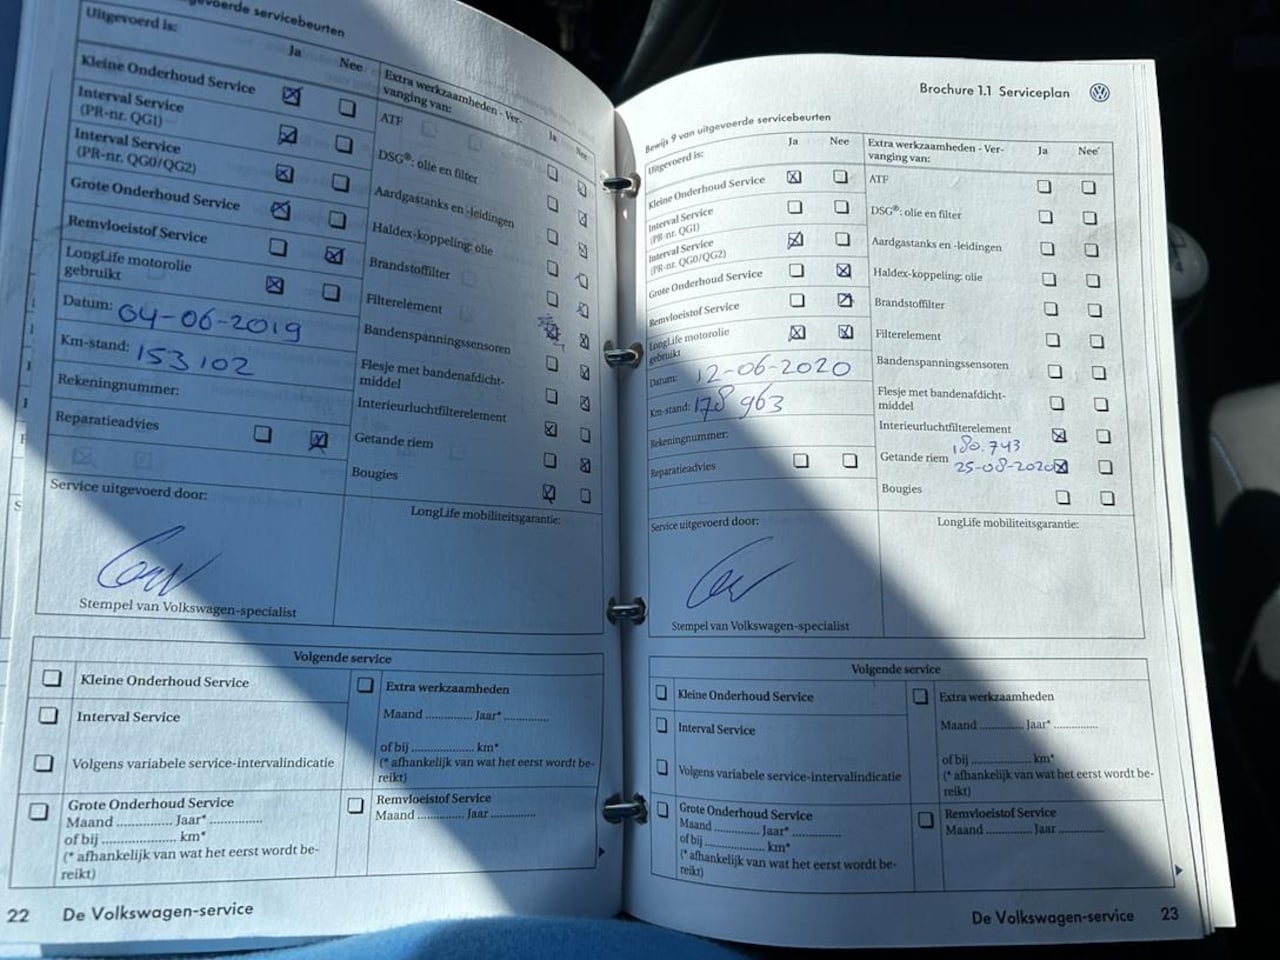 voerde servicebeurten
Uitgevoerd is:
Ja
Nee
Kleine Onderhoud Service
Interval Service
(PR-nr. QG1)
Interval Service
(PR-nr. QG0/QG2)
Grote Onderhoud Service
Remvloeistof Service
LongLife motorolie
gebruikt
Datum: 04-06-2019
Km-stand: 153102
Rekeningnummer:
Reparatieadvies
Service uitgevoerd door:
Stempel van Volkswagen-specialist
Extra werkzaamheden - Ver-
vanging van:
Ja
Nee
ATF
DSG®: olie en filter
Aardgastanks en -leidingen
Haldex-koppeling: olie
Brandstoffilter
Filterelement
Bandenspanningssensoren
Flesje met bandenafdicht-
middel
Interieurluchtfilterelement
Getande riem
Bougies
LongLife mobiliteitsgarantie:
Volgende service
Kleine Onderhoud Service
Interval Service
Volgens variabele service-intervalindicatie
Grote Onderhoud Service
Maand .............. Jaar* .............
of bij ................... km*
(* afhankelijk van wat het eerst wordt be-
reikt)
Extra werkzaamheden
Maand .............. Jaar* .............
of bij ................... km*
(* afhankelijk van wat het eerst wordt be-
reikt)
Remvloeistof Service
Maand .............. Jaar .............
22 De Volkswagen-service
Brochure 1.1 Serviceplan
Bewijs 9 van uitgevoerde servicebeurten
Uitgevoerd is:
Ja
Nee
Kleine Onderhoud Service
Interval Service
(PR-nr. QG1)
Interval Service
(PR-nr. QG0/QG2)
Grote Onderhoud Service
Remvloeistof Service
LongLife motorolie
gebruikt
Datum: 12-06-2020
Km-stand: 178 963
Rekeningnummer:
Reparatieadvies
Service uitgevoerd door:
Stempel van Volkswagen-specialist
Extra werkzaamheden - Ver-
vanging van:
Ja
Nee
ATF
DSG®: olie en filter
Aardgastanks en -leidingen
Haldex-koppeling: olie
Brandstoffilter
Filterelement
Bandenspanningssensoren
Flesje met bandenafdicht-
middel
Interieurluchtfilterelement
180.743
Getande riem 25-08-2020
Bougies
LongLife mobiliteitsgarantie:
Volgende service
Kleine Onderhoud Service
Interval Service
Volgens variabele service-intervalindicatie
Grote Onderhoud Service
Maand .............. Jaar* .............
of bij ................... km*
(* afhankelijk van wat het eerst wordt be-
reikt)
Extra werkzaamheden
Maand .............. Jaar* .............
of bij ................... km*
(* afhankelijk van wat het eerst wordt be-
reikt)
Remvloeistof Service
Maand .............. Jaar .............
De Volkswagen-service 23